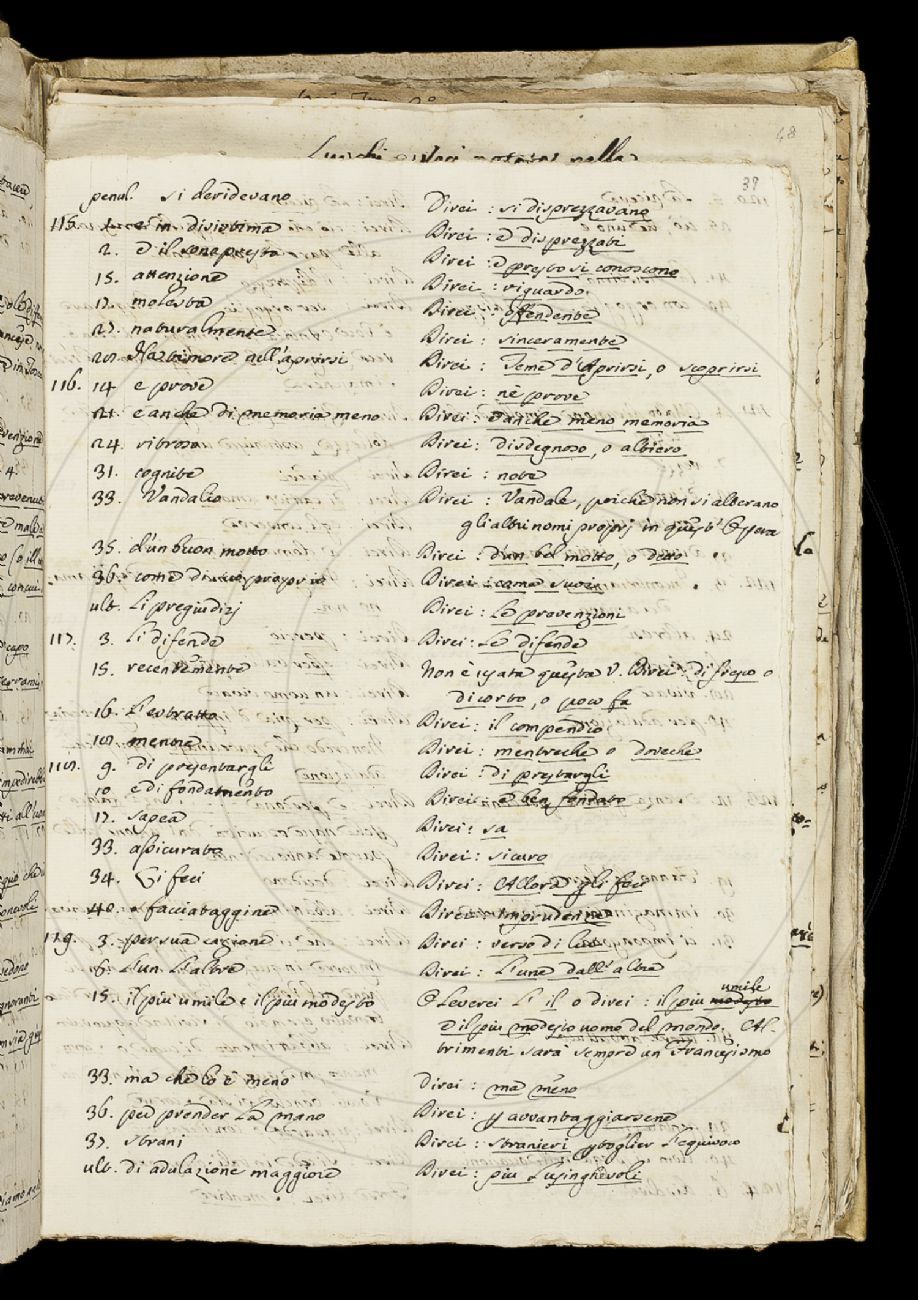 48
39
penul. si deridevano Direi : si disprezzavano
115. e in disistima Direi : e disprezzati
2. E il sono presto Direi : e presto si conoscono
15. attenzione Direi : riguardo
17. molesta Direi : offendente
27. naturalmente Direi : sinceramente
29. Ha timore nell'aprirsi Direi : Teme d'Aprirsi, o scoprirsi
116. 14 e prove Direi : nè prove
21. e anche di memoria meno Direi : e anche meno memoria
24. ritroso Direi : disdegnoso, o altiero
31. cognite Direi : note
33. Vandalio Direi : Vandale, poichè non si alterano
gli altri nomi proprj in quest' Opera
35. d'un buon motto Direi : d'un bel motto, o detto
36. come proprie Direi : come suoi
ult. Li pregiudizj Direi : Le prevenzioni
117. 3. Li difende Direi : Le difende
15. recentemente Non è usata questa V. Direi : di fresco o
di corto, o poco fa
16. L'estratto Direi : il compendio
19. mentre Direi : mentreche o doveche
118. 9. di presentargli Direi : di prestargli
10. e di fondamento Direi : e ben fondato
17. sapea Direi : sa
33. assicurato Direi : sicuro
34. Gi feci Direi : Allora gli feci
40. sfacciataggine Direi : Imprudenza
119. 3. per sua cagione Direi : verso di lui
6. L'un L'altre Direi : L'une dall'altre
15. il piu umile e il piu modesto O Leverei L' il o direi : il piu modesto umile
e il piu modesto uomo del mondo. Al-
trimenti sarà sempre un Francesismo
33. ma che lo è meno Direi : ma meno
36. per prender La mano Direi : p avvantaggiarsene
37. strani Direi : stranieri p toglier l'equivoco
ult. di adulazione maggiore Direi : piu Lusinghevoli